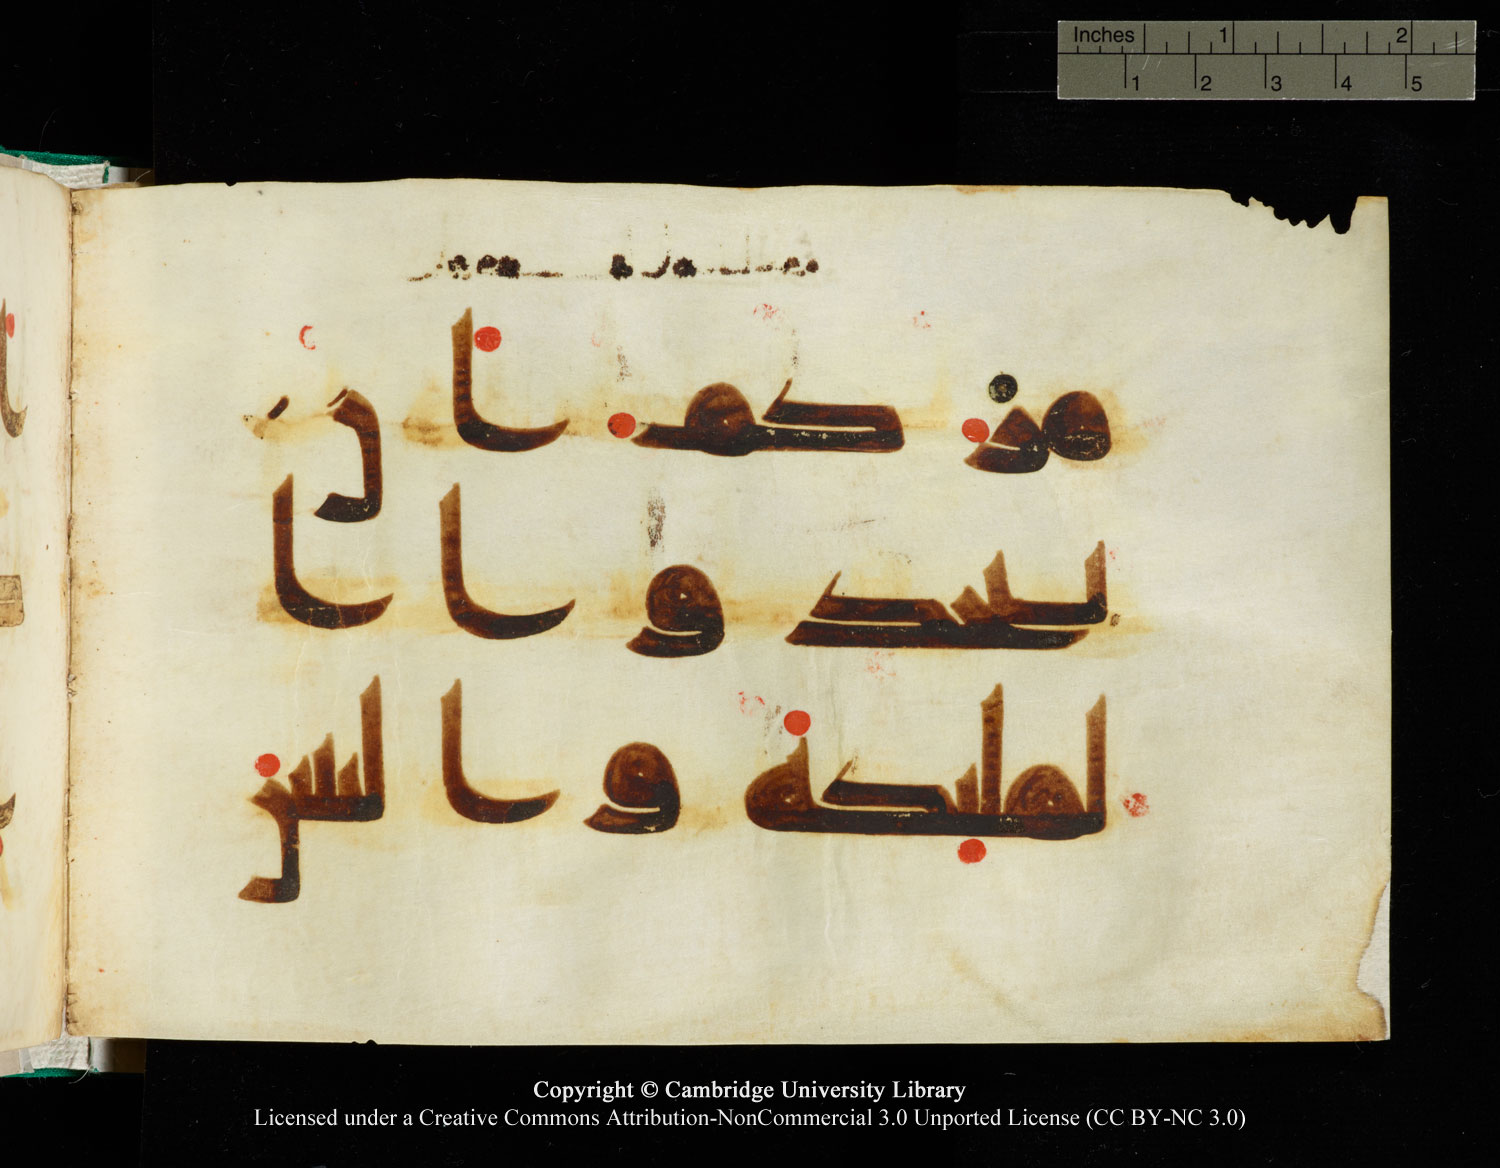 Inches 1 2
1 2 3 4 5
مركم ان
تتخذوا ا
لملئكة والنبين
Copyright © Cambridge University Library
Licensed under a Creative Commons Attribution-NonCommercial 3.0 Unported License (CC BY-NC 3.0)